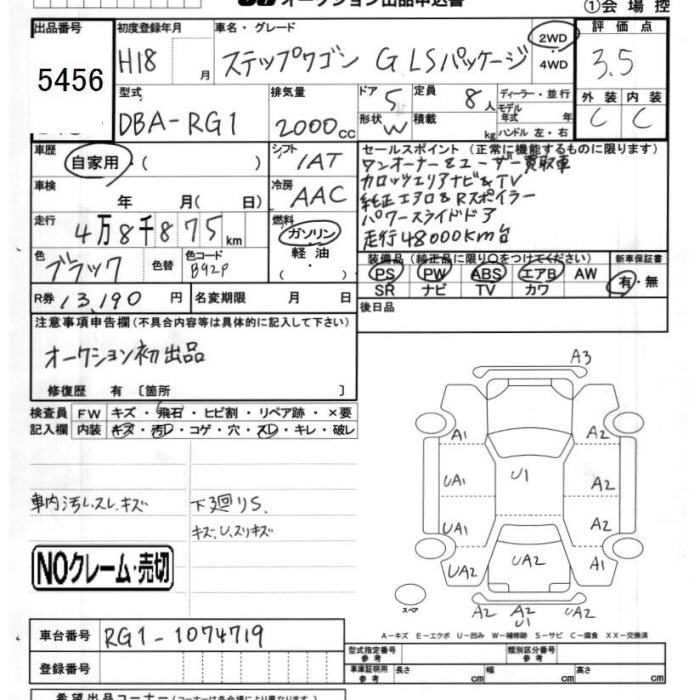 オークション出品申込書
①会場控
出品番号 初度登録年月 車名・グレード 評価点
5456 H18 月 ステップワゴン G LSパッケージ 2WD 4WD 3.5
型式 排気量 ドア 5 定員 8人 ディーラー・並行 外装 内装
DBA-RG1 2000cc 形状 W 積載 kg モデル年式 年 ハンドル 左・右 C C
車歴 自家用・( ) シフト IAT セールスポイント (正常に機能するものに限ります)
ワンオーナー&ユーザー買取車
車検 年 月( 日) 冷房 AAC カロッツェリアナビ&TV
純正エアロ&Rスポイラー
走行 4万8千875km 燃料 ガソリン・軽油・( ) パワースライドドア
走行48000km台
色 ブラック 色替 色コード B92P 装備品(純正品に限り○をつけてください) 新車保証書
PS PW ABS エアB AW 有・無
SR ナビ TV カワ
R券 13,190円 名変期限 月 日 後日品
注意事項申告欄(不具合内容等は具体的に記入して下さい)
オークション初出品
修復歴 有 〔箇所 〕
検査員 FW キズ・飛石・ヒビ割・リペア跡・×要
記入欄 内装 キズ・汚レ・コゲ・穴・スレ・キレ・破レ
車内汚レ.スレ.キズ 下廻りS.
キズ、U.スリキズ
NOクレーム・売切
A3
A1 A2
UA1 U1 A2
UA1 A2
UA2 UA2 A1
スペア
A2 A2 A2
U1
A-キズ E-エクボ U-凹み W-補修跡 S-サビ C-腐食 XX-交換済
車台番号 RG1-1074719
型式指定番号 参考 類別区分番号 参考
登録番号 車庫証明用 参考 長さ cm 幅 cm 高さ cm
希望出品コーナー(コーナーは各会場により異なります)